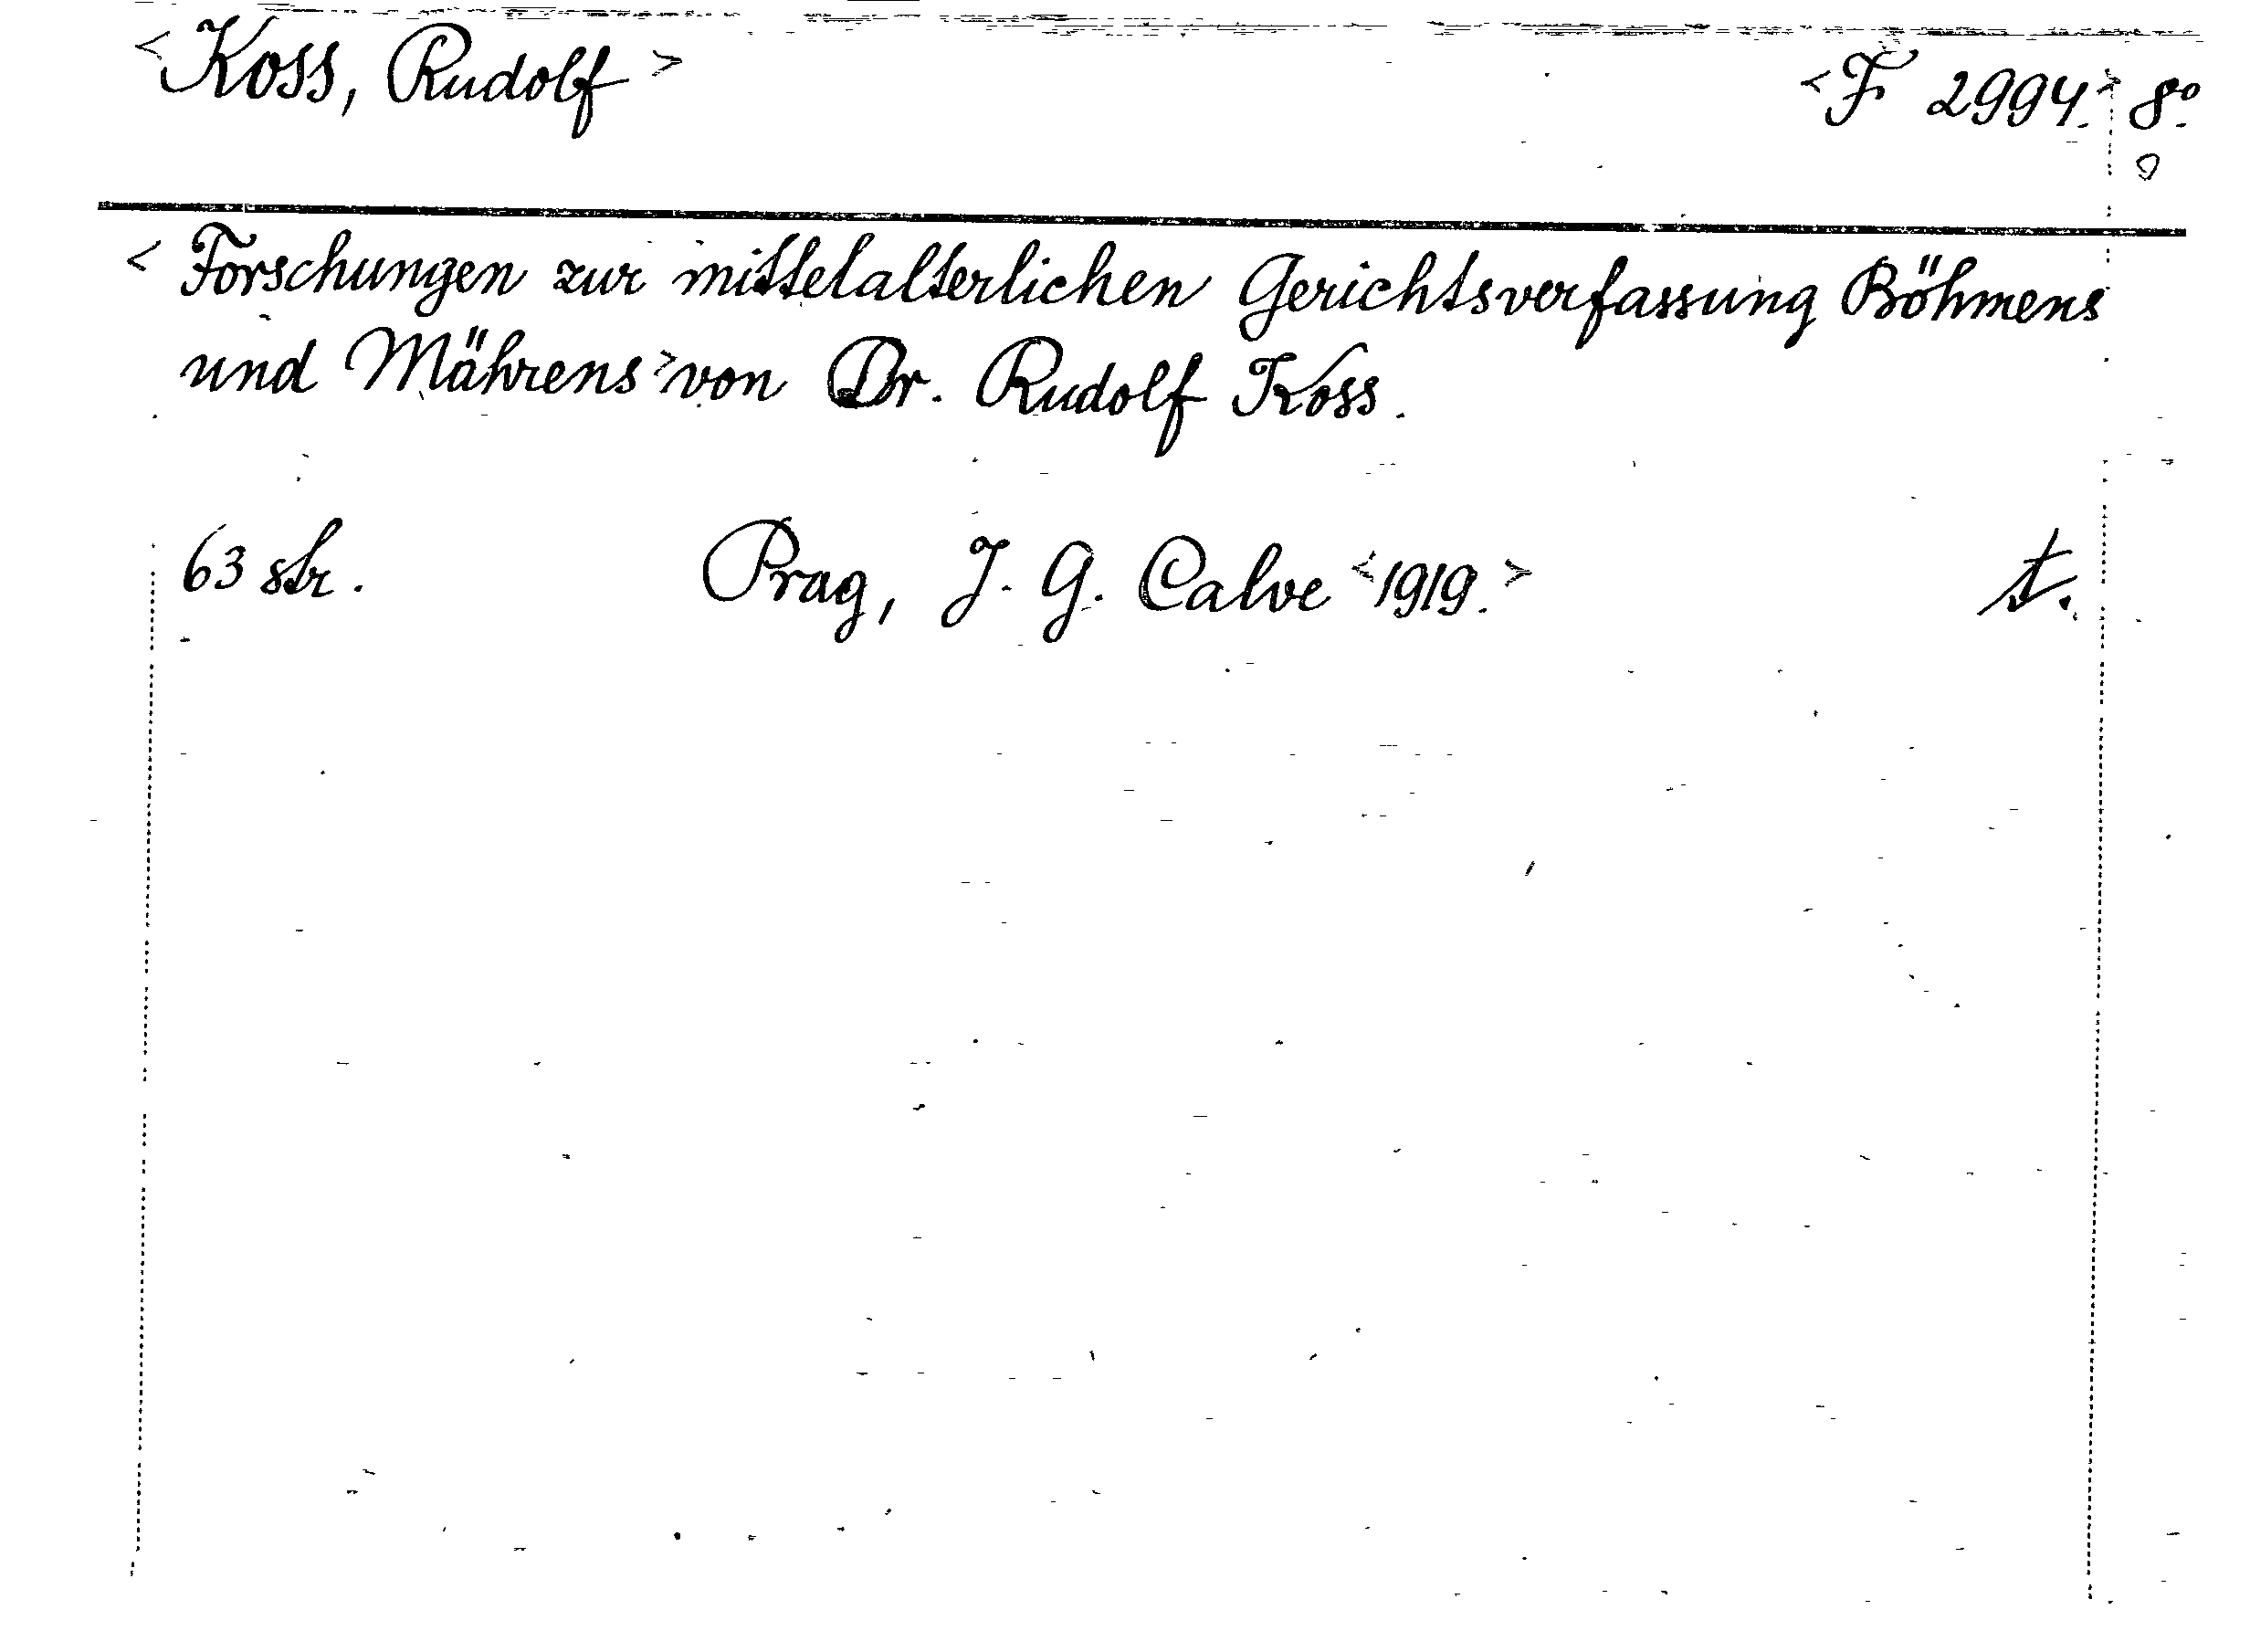 <Koss, Rudolf> <F 2994.> 8°.
< Forschungen zur mittelalterlichen Gerichtsverfassung Böhmens
und Mährens> von Dr. Rudolf Koss.
63 str. Prag, J. G. Calve <1919.> t.